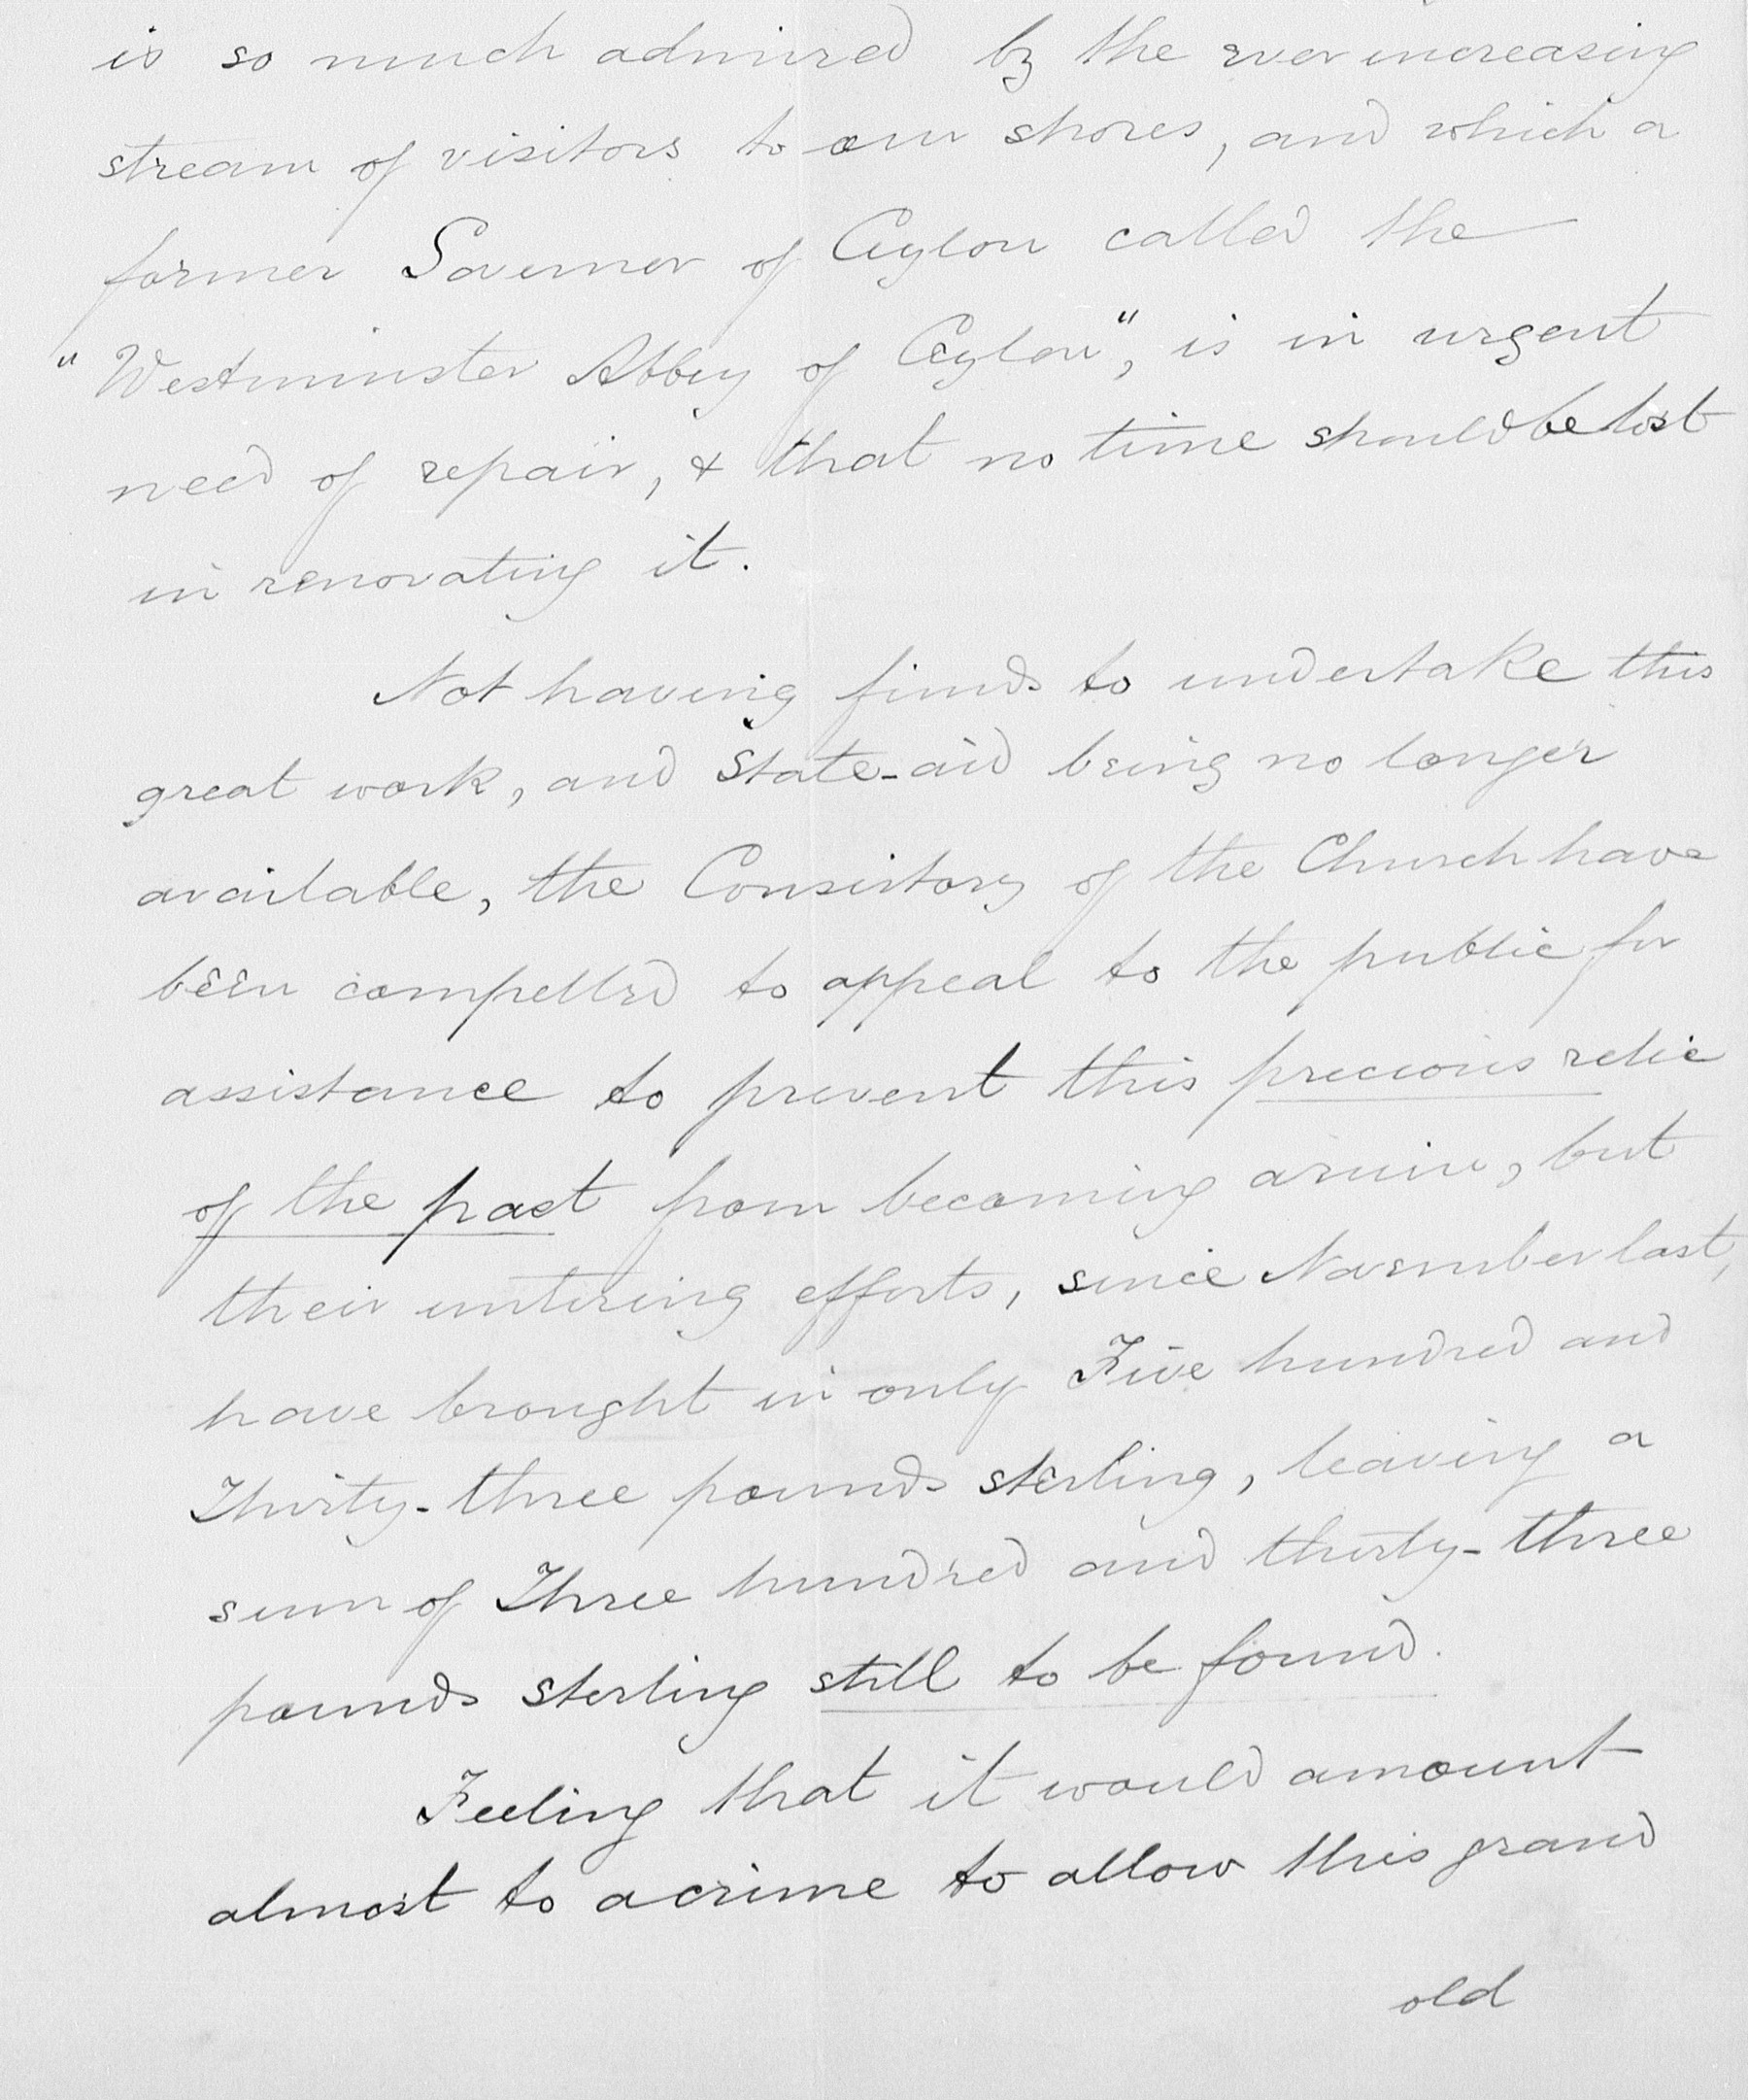 is so much admired by the ever increasing
stream of visitors to our shores, and which a
former Governor of Ceylon called the
"Westminster Abbey of Ceylon", is in urgent
need of repair, & that no time should be lost
in renovating it.
Not having funds to undertake this
great work, and State-aid being no longer
available, the Consistory of the Church have
been compelled to appeal to the public for
assistance to prevent this precious relic
of the past from becoming a ruin, but
their untiring efforts, since November last,
have brought in only Five hundred and
Thirty-three pounds sterling, leaving a
sum of Three hundred and thirty-three
pounds sterling still to be found.
Feeling that it would amount
almost to a crime to allow this grand
old